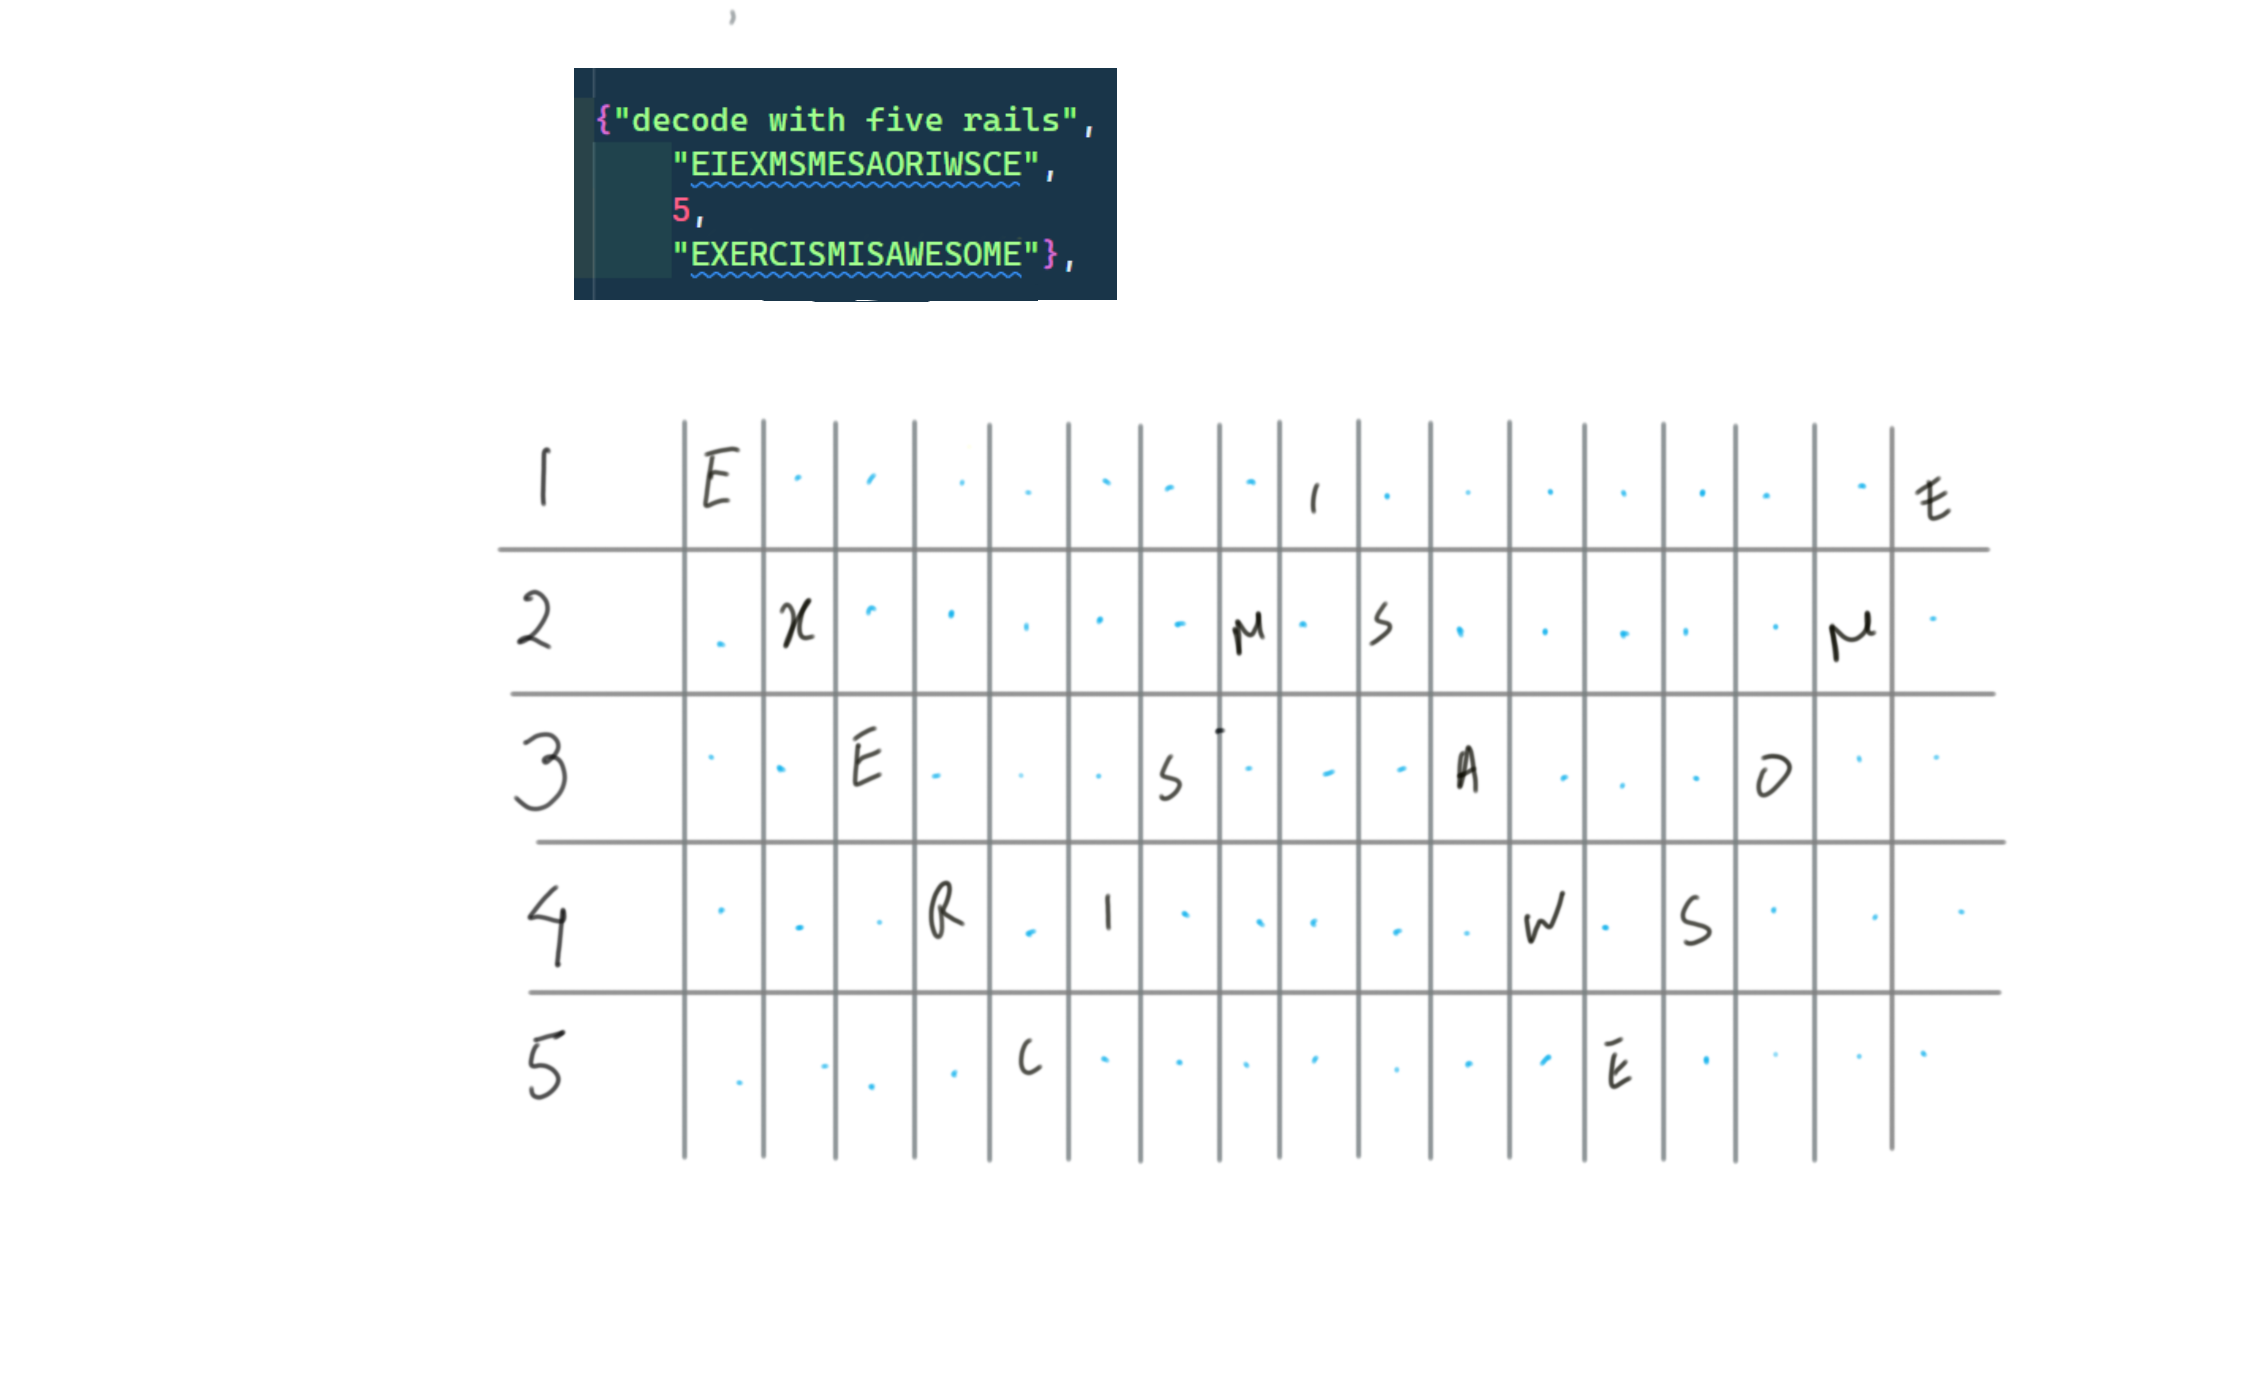 {"decode with five rails",
"EIEXMSMESAORIWSCE",
5,
"EXERCISMISAWESOME"},
1 E . . . . . . . I . . . . . . . E
2 . X . . . . . M . S . . . . . M .
3 . . E . . . S . . . A . . . O . .
4 . . . R . I . . . . . W . S . . .
5 . . . . C . . . . . . . E . . . .